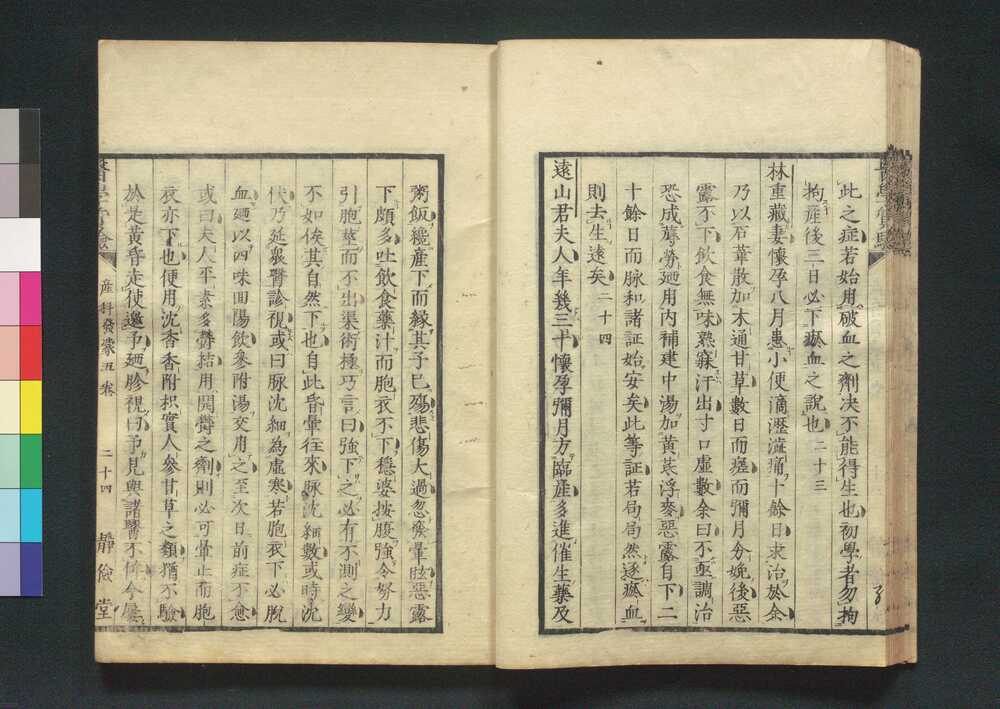 此之症若始用破血之劑決不能得生也初學者勿拘
拘產後三日必下瘀血之說也 二十三
林重藏妻懷孕八月患小便滴瀝澁痛十餘日求治於余
乃以石葦散加木通甘草數日而瘥而彌月分娩後惡
露不下飲食無味熟寐汗出寸口虛數余曰不亟調治
恐成蓐勞廼用內補建中湯加黃芪浮麥惡露自下二
十餘日而脉和諸証始安矣此等証若局局然逐瘀血
則去生遠矣 二十四
遠山君夫人年幾三十懷孕彌月方臨產多進催生藥及
粥飯纔產下而緣其子已殤悲傷大過忽發暈眩惡露
下頗多吐飲食藥汁而胞衣不下穩婆按腹強令努力
引胞莖而不出渠術極巧言曰強下之必有不測之變
不如俟其自然下也自此昏暈往來脉沈細數或時沈
伏乃延衆醫診視或曰脉沈細為虛寒若胞衣下必脫
血廼以四味回陽飲參附湯交用之至次日前症不愈
或曰夫人平素多欝結用開欝之劑則必可暈止而胞
衣亦下也便用沈香香附枳實人參甘草之類猶不驗
於是黃昏走使邀予廼胗視曰予見與諸醫不侔今
醫學實驗
產科發蒙五卷
二十四
靜儉堂